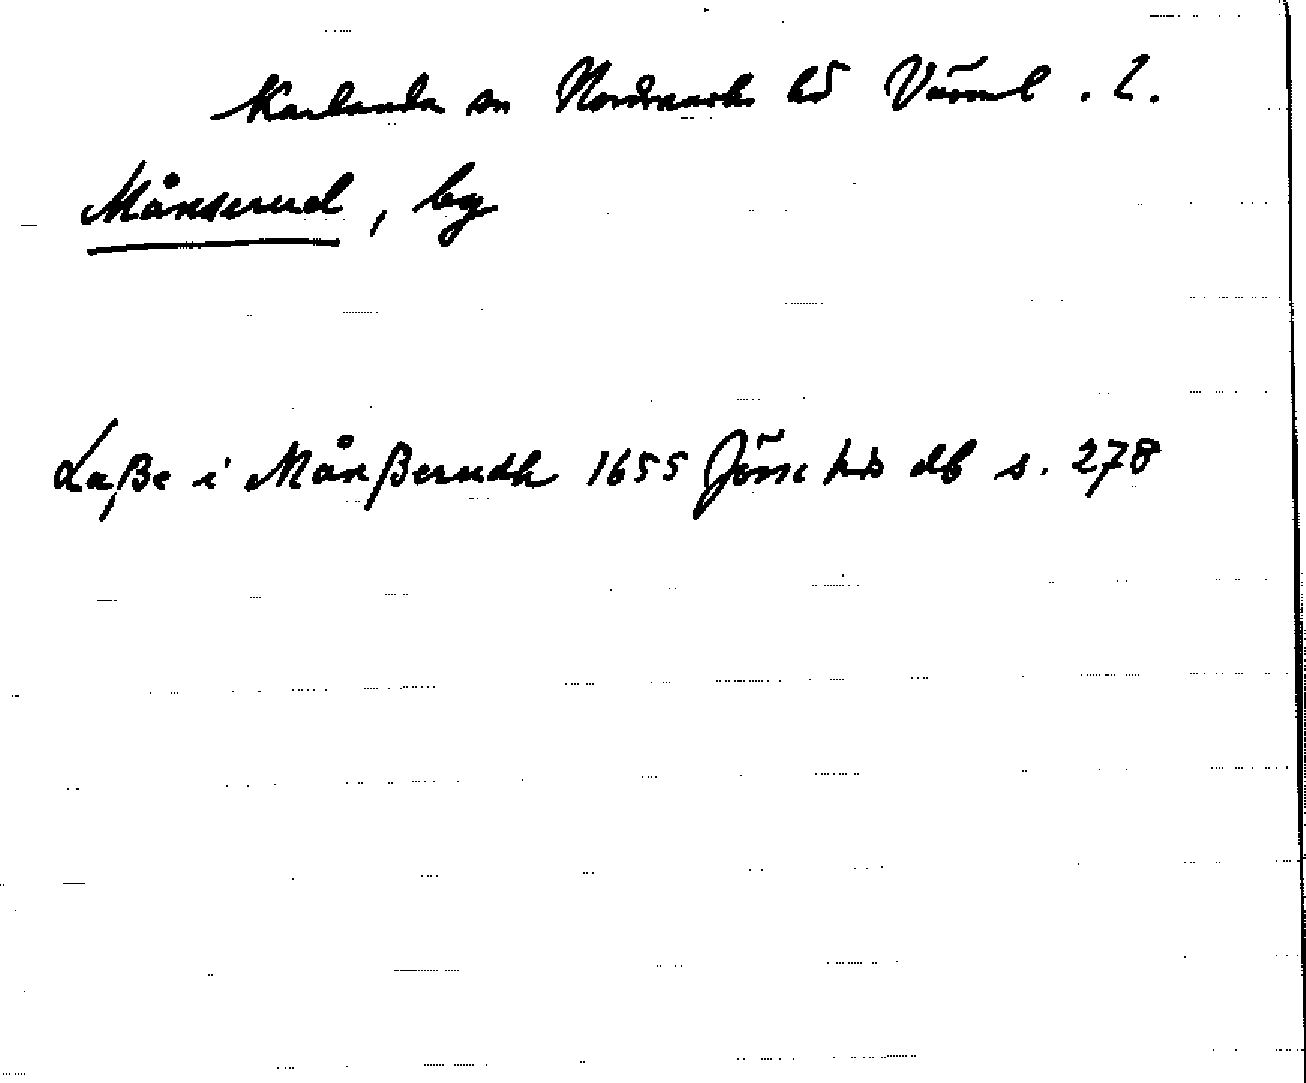 Karlanda sn Nordmarks hd Värml. l.
Månserud, by
Laße i Månßerudh 1655 Jösse hds db s. 278